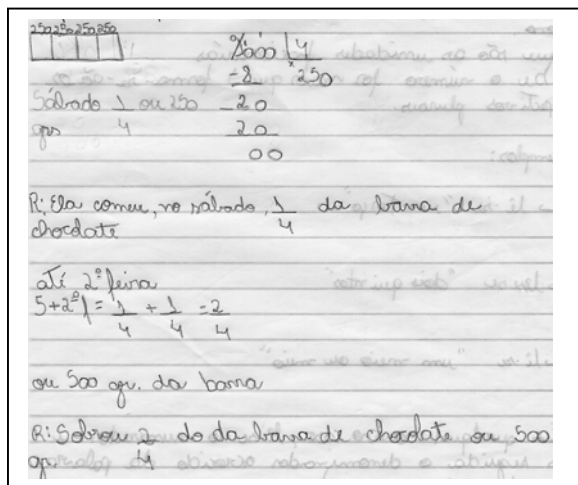 250 250 250 250
1000 | 4
-8 250
Sábado 1/4 ou 250 -20
grs 20
00
R: Ela comeu, no sábado, 1/4 da barra de
chocolate
até 2ª feira
S+2ª f = 1/4 + 1/4 = 2/4
ou 500 gr. da barra
R: Sobrou 2/4 do da barra de chocolate ou 500
gr.